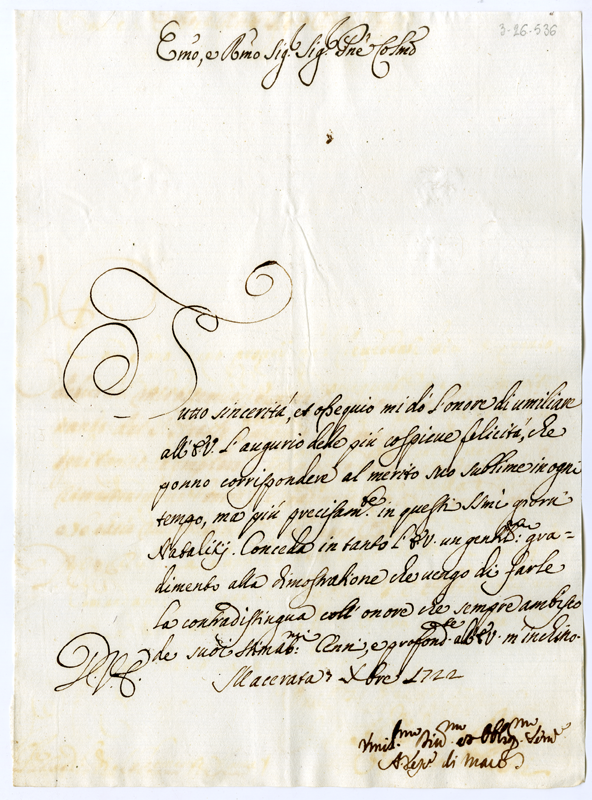 3-26-536
Emo, e Rmo Sig.r Sig.r Pne Colmo
Tutto sincerità, et ossequio mi dò l'onore di umiliare
all'EV. L'augurio dele più cospicue felicità, che
ponno corrispondere al merito suo sublime in ogni
tempo, ma più precisam.te in questi Ssmi giorni
Natalitij. Conceda in tanto l'EV. un gentil.mo gra=
dimento alla dimostratione che vengo di farle
la contradistingua coll'onore che sempre ambisco
de suoi stimab.mi Cenni, e profond.te all'EV. m'inchino.
Macerata 7 Xbre 1722
Vmil.mo Div.mo et Obblig.mo Serv.e
di Mac.